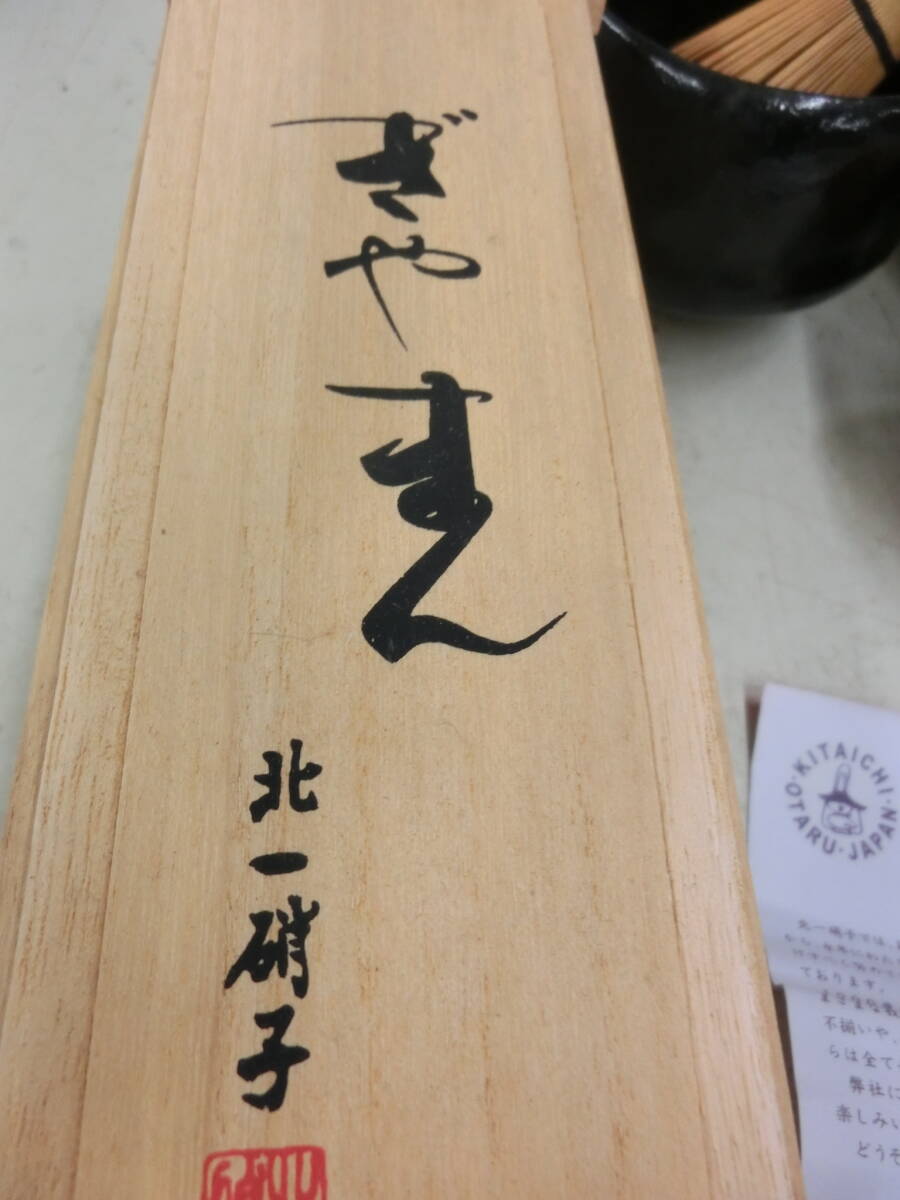 ぎやまん
北一硝子
KITAICHI・OTARU・JAPAN
ております。
不揃いや、
らは全て
弊社に
楽しみい
どうぞ